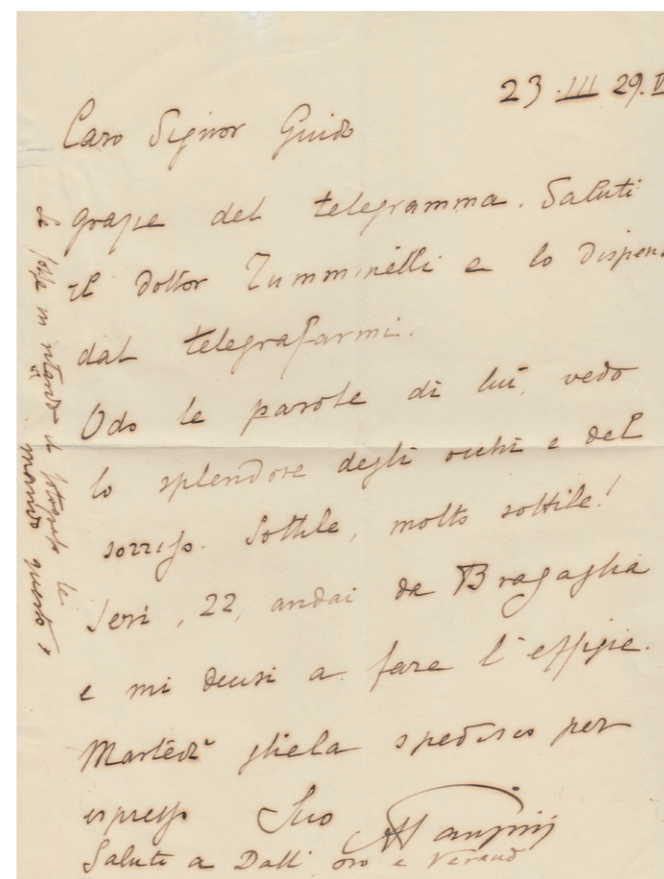 23 . III 29. V
Caro Signor Guido
grazie del telegramma. Saluti
il dottor Tumminelli e lo dispen.
dal telegrafarmi.
Odo le parole di lui, vedo
lo splendore degli occhi e del
sorriso. Sottile, molto sottile!
Ieri, 22, andai da Bragaglia
e mi decisi a fare l'effigie.
Martedì gliela spedisco per
espresso Suo
Saluti a Dall'Oro e
Se fosse in ritardo il fotografo le
mando questo,